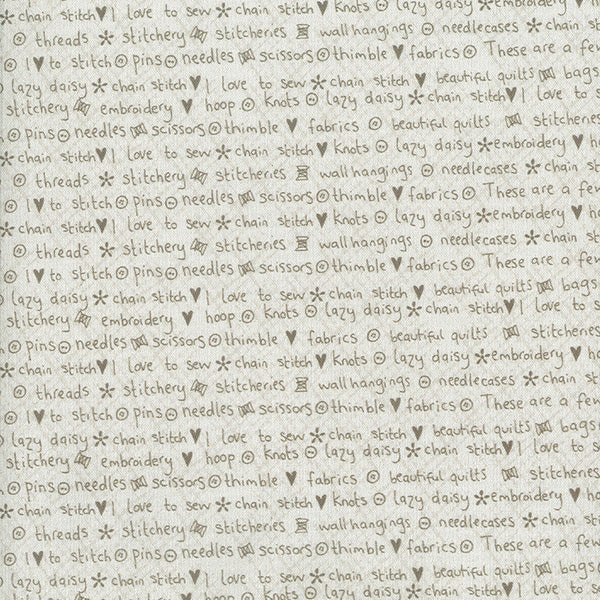 chain stitch I love to sew chain stitch knots lazy daisy embroidery
threads stitchery stitcheries wall hangings needlecases chain
I to stitch pins needles scissors thimble fabrics These are a few
lazy daisy chain stitch I love to sew chain stitch beautiful quilts bags
stitchery embroidery hoop knots lazy daisy chain stitch I love to s
pins needles scissors thimble fabrics beautiful quilts stitcheries
chain stitch I love to sew chain stitch knots lazy daisy embroidery h
threads stitchery stitcheries wall hangings needlecases chain st
I to stitch pins needles scissors thimble fabrics These are a few
chain stitch I love to sew chain stitch knots lazy daisy embroidery h
threads stitchery stitcheries wall hangings needlecases chain st
I to stitch pins needles scissors thimble fabrics These are a few
lazy daisy chain stitch I love to sew chain stitch beautiful quilts bags
stitchery embroidery hoop knots lazy daisy chain stitch I love to s
pins needles scissors thimble fabrics beautiful quilts stitcheries
chain stitch I love to sew chain stitch knots lazy daisy embroidery ho
threads stitchery stitcheries wall hangings needlecases chain sti
I to stitch pins needles scissors thimble fabrics These are a few
lazy daisy chain stitch I love to sew chain stitch beautiful quilts bags
stitchery embroidery hoop knots lazy daisy chain stitch I love to s
pins needles scissors thimble fabrics beautiful quilts stitcheries
chain stitch I love to sew chain stitch knots lazy daisy embroidery ho
threads stitchery stitcheries wall hangings needlecases chain sti
I to stitch pins needles scissors thimble fabrics These are a few
lazy daisy chain stitch I love to sew chain stitch beautiful quilts bags